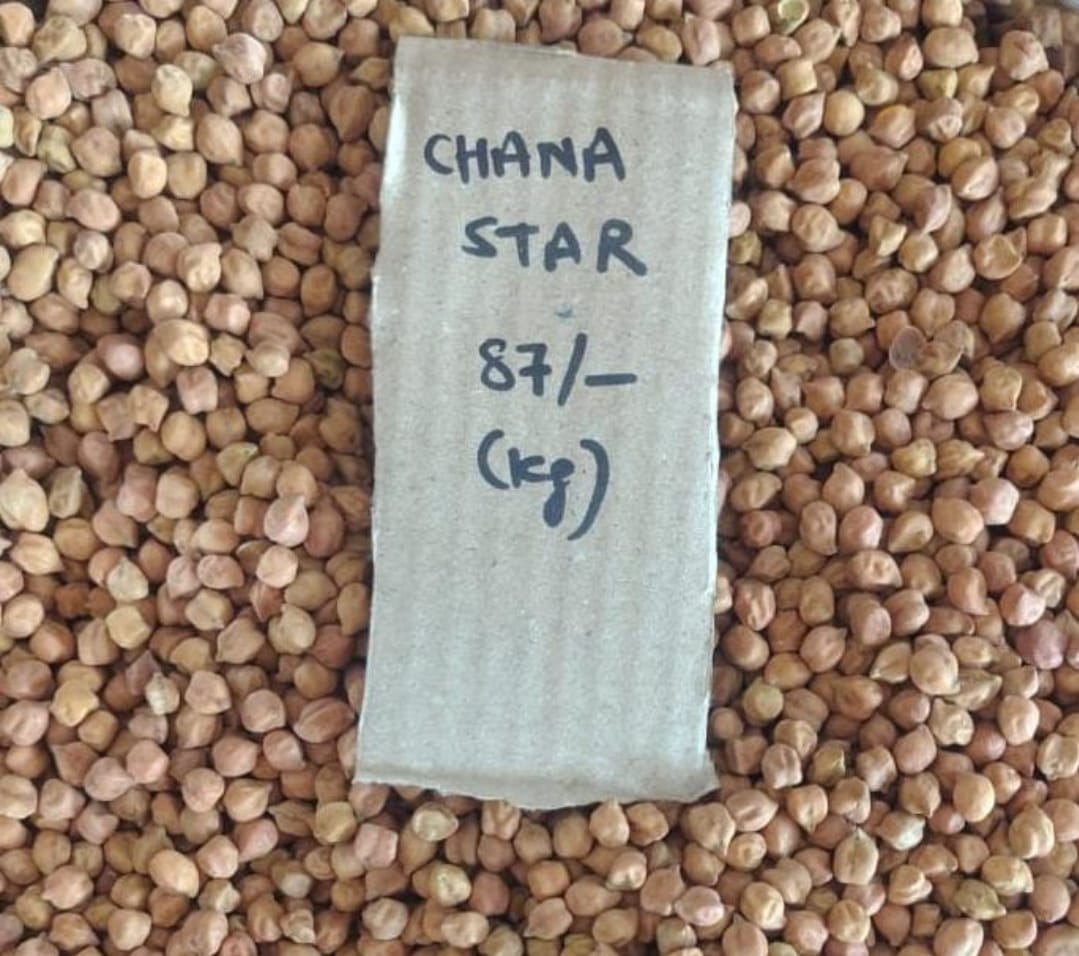 CHANA
STAR
87/-
(kg)